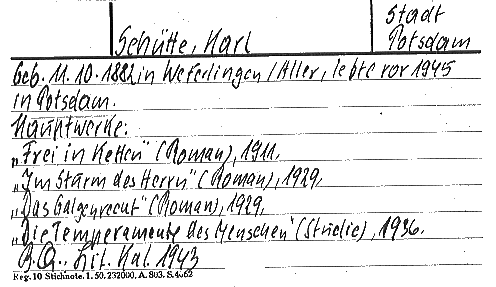 Schütte, Karl
Stadt
Potsdam
Geb. 11.10.1882 in Weferlingen/Aller, lebte vor 1945
in Potsdam.
Hauptwerke:
„Frei in Ketten" (Roman), 1911,
„Im Sturm des Herrn" (Roman), 1929,
„Das Galgenrecht" (Roman), 1929,
„Die Temperamente des Menschen" (Studie), 1936.
B.Q.: Lit. Kal. 1943
Reg. 10 Stichnote. 1. 50. 232000. A. 803. S. 4662